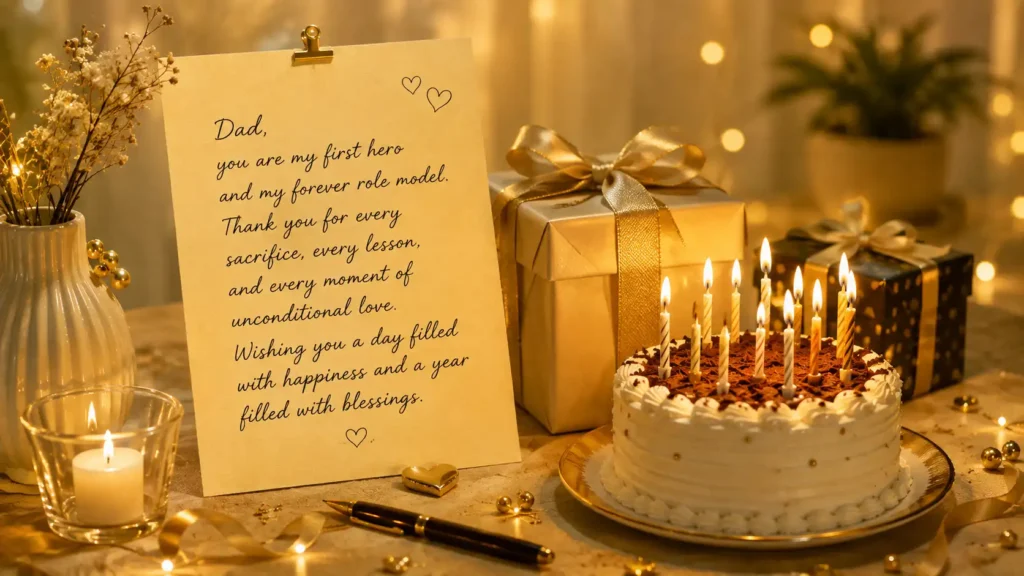 Dad,
you are my first hero
and my forever role model.
Thank you for every
sacrifice, every lesson,
and every moment of
unconditional love.
Wishing you a day filled
with happiness and a year
filled with blessings.